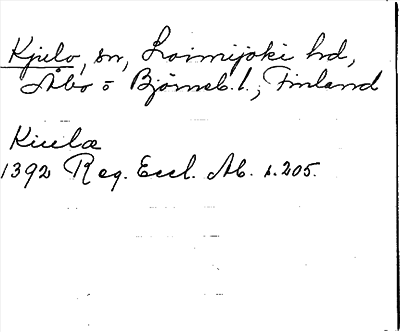 Kjulo, sn, Loimijoki hd,
Åbo o Björneb. l., Finland
Kiulæ
1392 Reg. Eccl. Ab. s. 205.